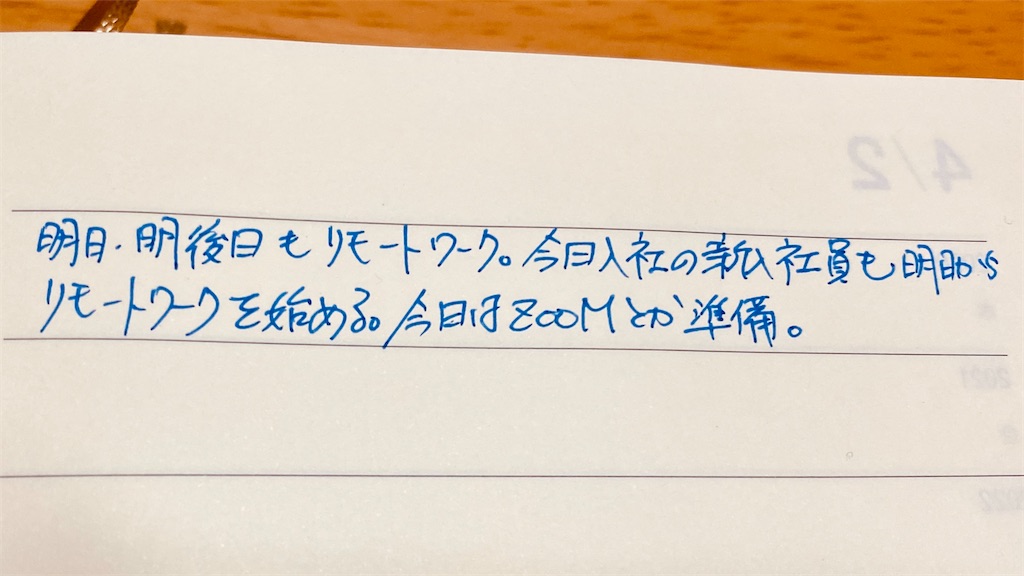 明日・明後日もリモートワーク。今日入社の新入社員も明日から
リモートワークを始める。今日はZOOMとか準備。
4/2
2021
2022